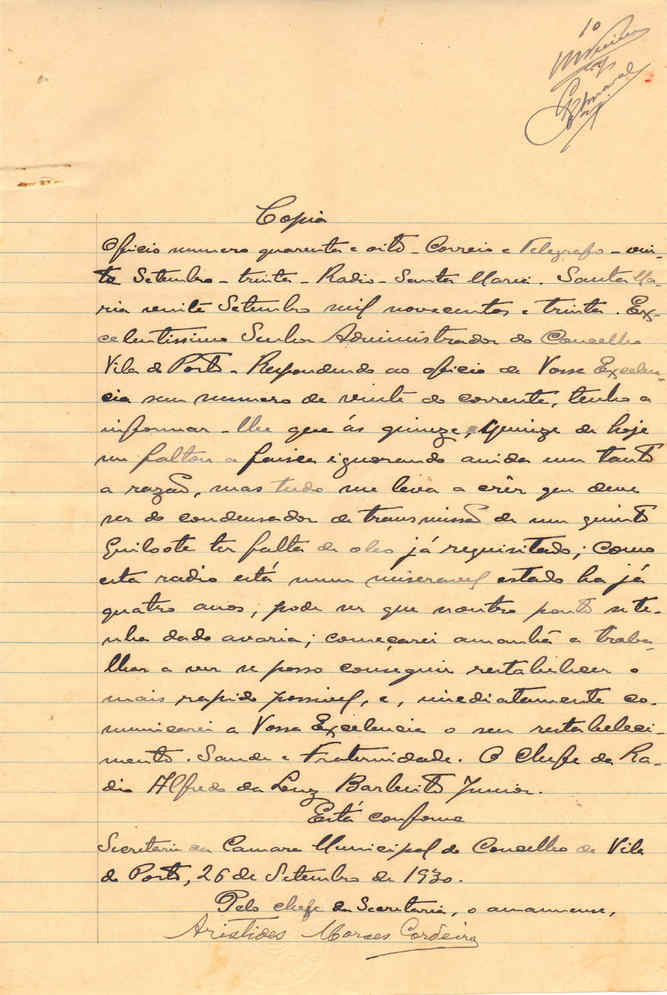 10
Copia
Oficio numero quarenta e oito - Correio e Telegrafo - vin-
te Setembro - trinta - Radio - Santa Maria. Santa Ma-
ria vinte Setembro mil novecentos e trinta. Ex-
celentissimo Senhor Administrador do Concelho
Vila do Porto - Respondendo ao oficio de Vossa Excelen-
cia sem numero de vinte do corrente, tenho a
informar-lhe que ás quinze, quinze de hoje
me faltou a faisca ignorando ainda um tanto
a razão, mas tudo me leva a crêr que deve
ser do condensador de transmissão de um quinto
ter falta de oleo já requisitado; como
esta radio está num miseravel estado ha já
quatro anos, pode ser que noutro ponto se te-
nha dado avaria; começarei amanhã a traba-
lhar a ver se posso conseguir restabelecer o
mais rapido possivel, e, imediatamente co-
municarei a Vossa Excelencia o seu restabeleci-
mento. Saude e Fraternidade. O Chefe da Ra-
dio Alfredo da Luz Barbeito Junior.
Está conforme
Secretaria da Camara Municipal do Concelho de Vila
do Porto, 26 de Setembro de 1930.
Pelo chefe da Secretaria, o amanuense,
Aristides Moraes Cordeiro